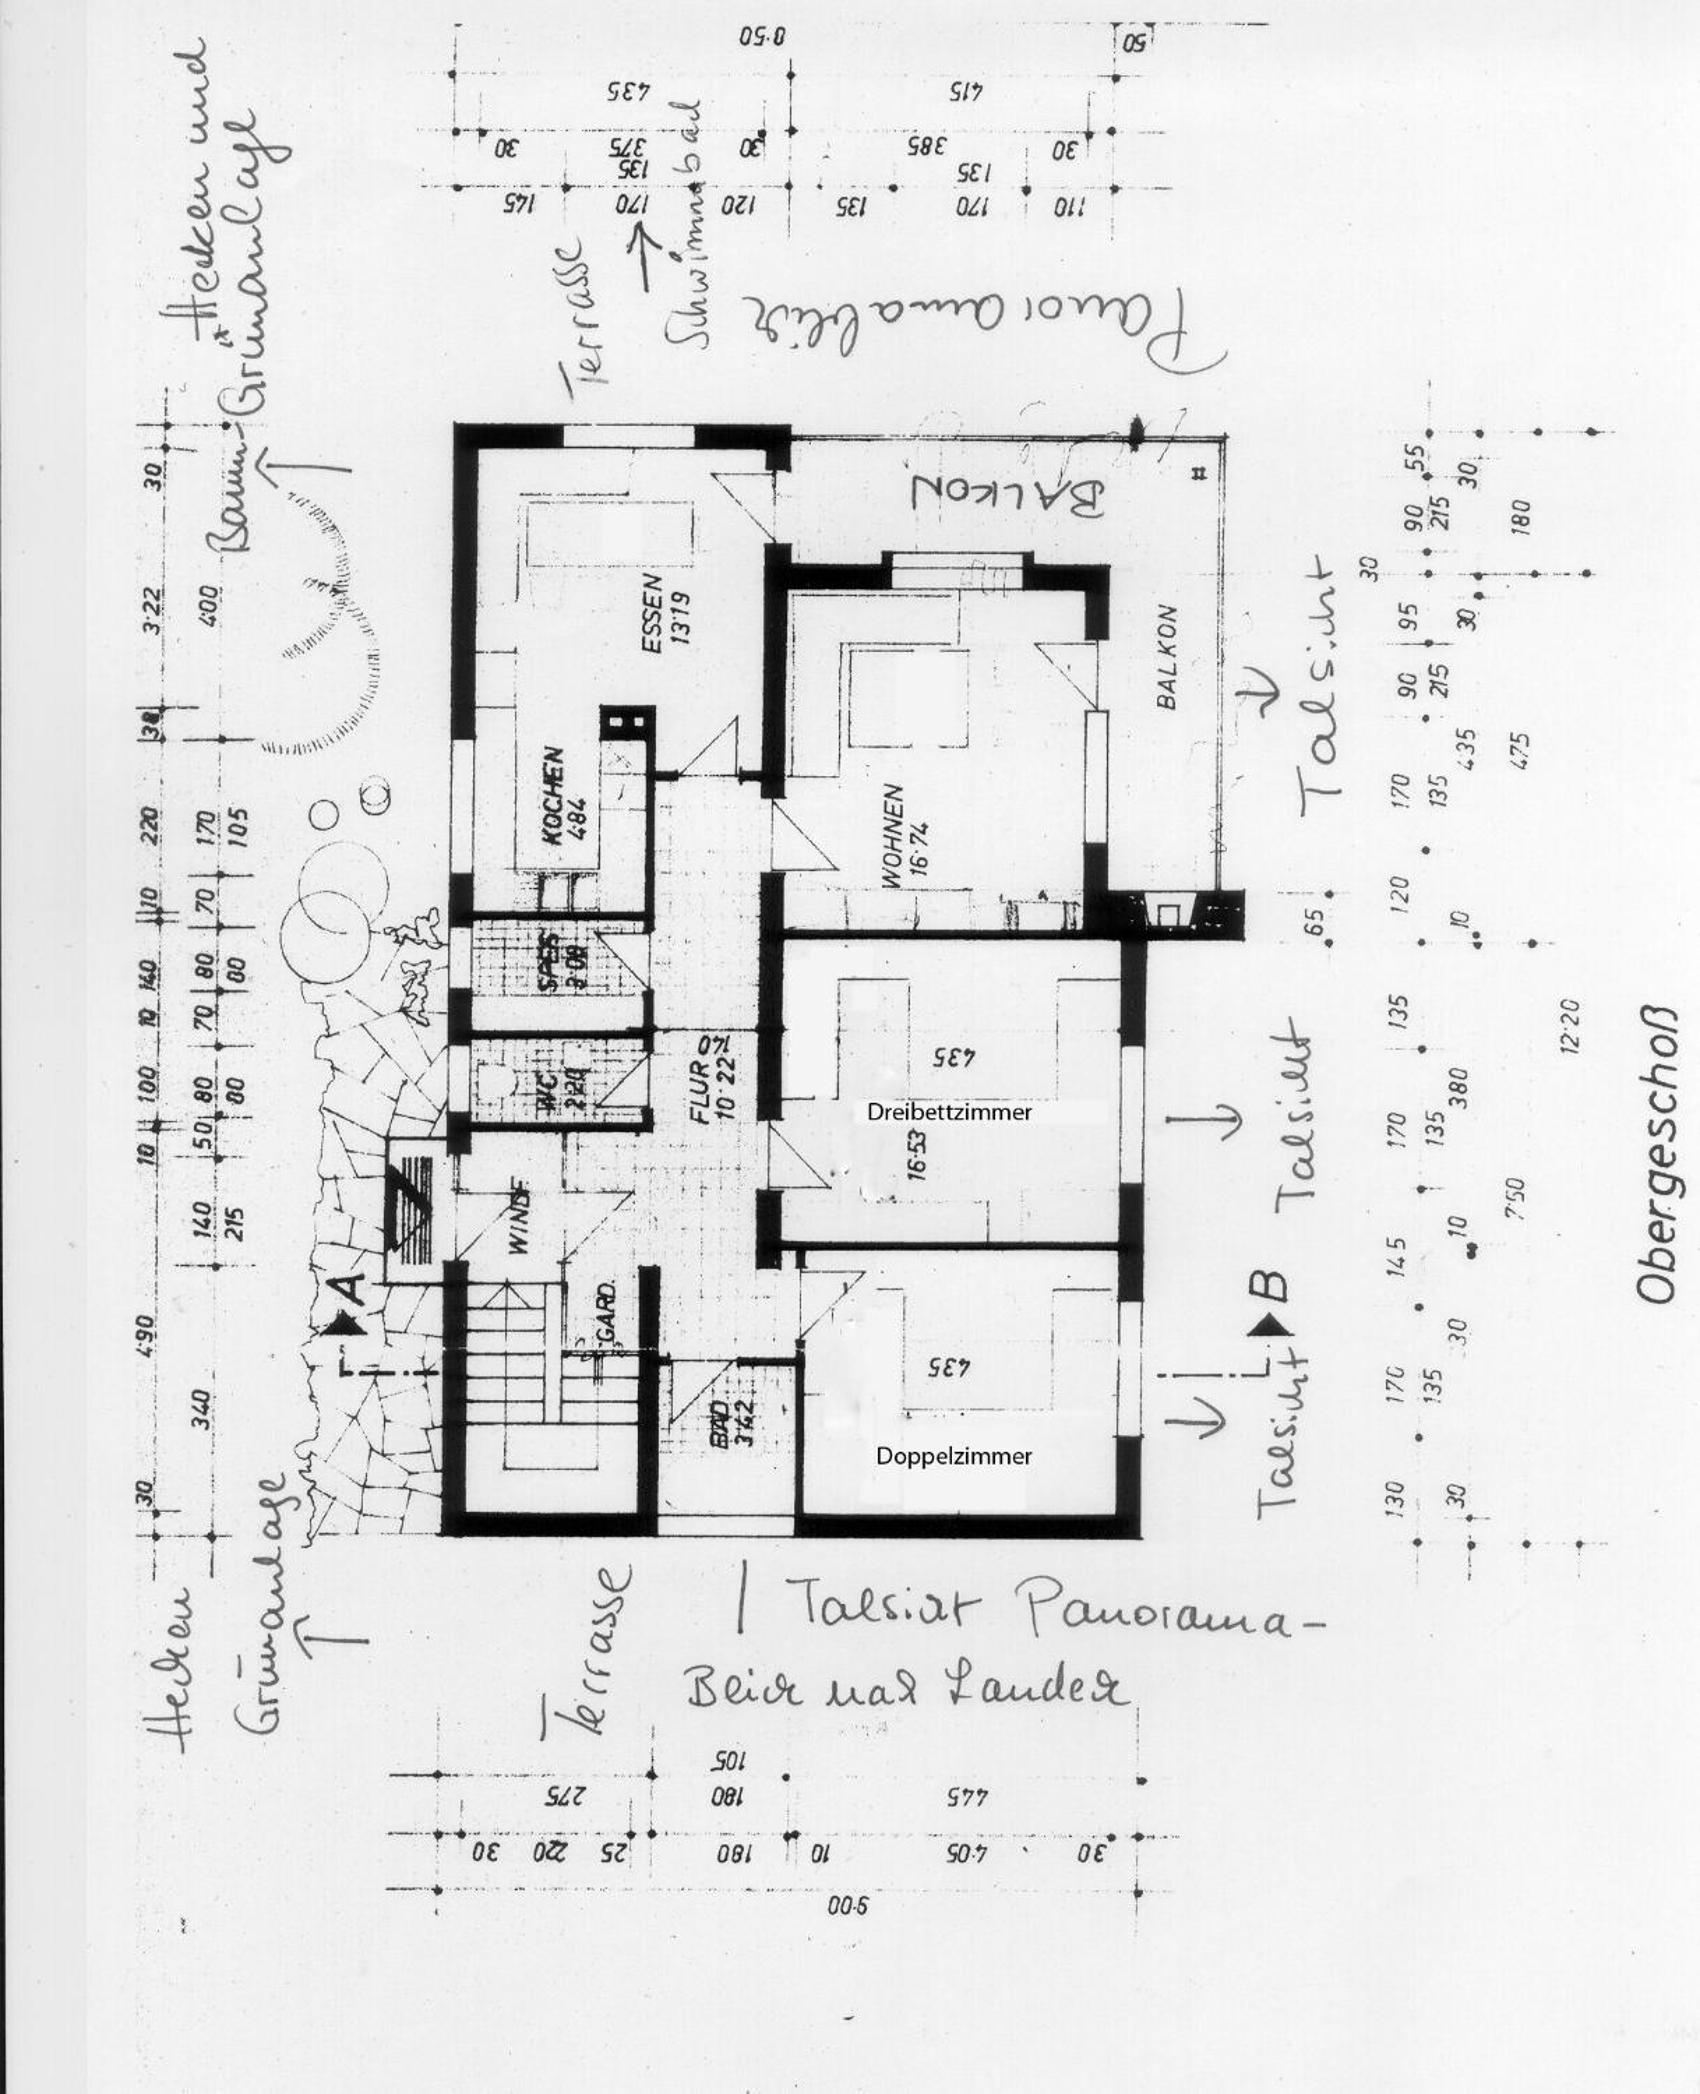 8·50
50
435
415
30
375
30
385
30
135
135
145
170
120
135
170
110
Hecken und
Baum- Grünanlage
Terrasse
Schwimmbad
Panoramablick
30
3·22
4·00
38
220
170
105
10
70
140
80
80
10
70
100
80
80
10
50
140
215
490
340
30
BALKON
BALKON
ESSEN
13·19
KOCHEN
4·84
WOHNEN
16·74
SPEIS
WC
FLUR
10·22
140
WINDF.
GARD.
BAD
3·42
435
Dreibettzimmer
16·53
435
Doppelzimmer
A
B
Talsicht
Talsicht
Talsicht
55
30
90
215
180
30
95
30
90
215
435
475
170
135
120
65
10
135
12·20
170
135
380
145
10
7·50
30
170
135
130
30
Obergeschoß
Hecken
Grünanlage
Terrasse
Talsicht Panorama-
Blick nach Landeck
105
275
180
445
30
220
25
180
10
4·05
30
9·00